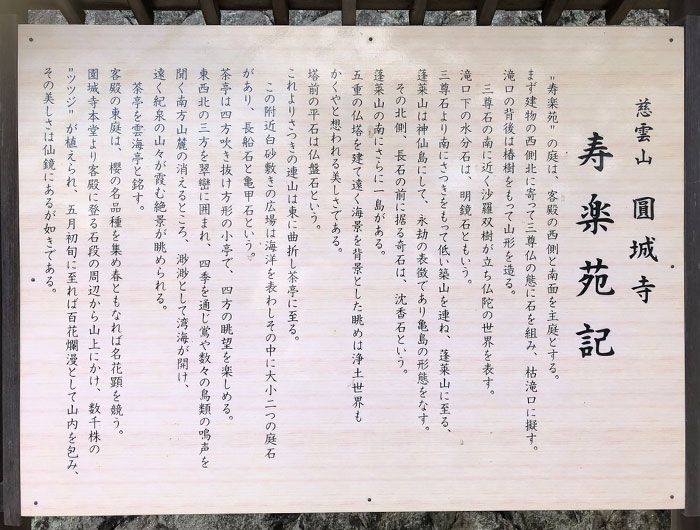 慈雲山　圓城寺
寿楽苑記
"寿楽苑"の庭は、客殿の西側と南面を主庭とする。
まず建物の西側北に寄って三尊仏の態に石を組み、枯滝口に擬す。
滝口の背後は椿樹をもって山形を造る。
三尊石の南に近く沙羅双樹が立ち仏陀の世界を表す。
滝口下の水分石は、明鏡石ともいう。
三尊石より南にさつきをもって低い築山を連ね、蓬莱山に至る、
蓬莱山は神仙島にして、永劫の表徴であり亀島の形態をなす。
その北側、長石の前に据る奇石は、沈香石という。
蓬莱山の南にさらに一島がある。
五重の仏塔を建て遠く海景を背景とした眺めは浄土世界も
かくやと想われる美しさである。
塔前の平石は仏盤石という。
これよりさつきの連山は東に曲折し茶亭に至る。
この附近白砂敷きの広場は海洋を表わしその中に大小二つの庭石
があり、長船石と亀甲石という。
茶亭は四方吹き抜け方形の小亭で、四方の眺望を楽しめる。
東西北の三方を翠巒に囲まれ、四季を通じ鶯や数々の鳥類の鳴声を
聞く南方山麓の消えるところ、渺渺として湾海が開け、
遠く紀泉の山々が霞む絶景が眺められる。
茶亭を雲海亭と銘す。
客殿の東庭は、櫻の名品種を集め春ともなれば名花顕を競う。
圓城寺本堂より客殿に登る石段の周辺から山上にかけ、数千株の
"ツツジ"が植えられ、五月初旬に至れば百花爛漫として山内を包み、
その美しさは仙鏡にあるが如きである。